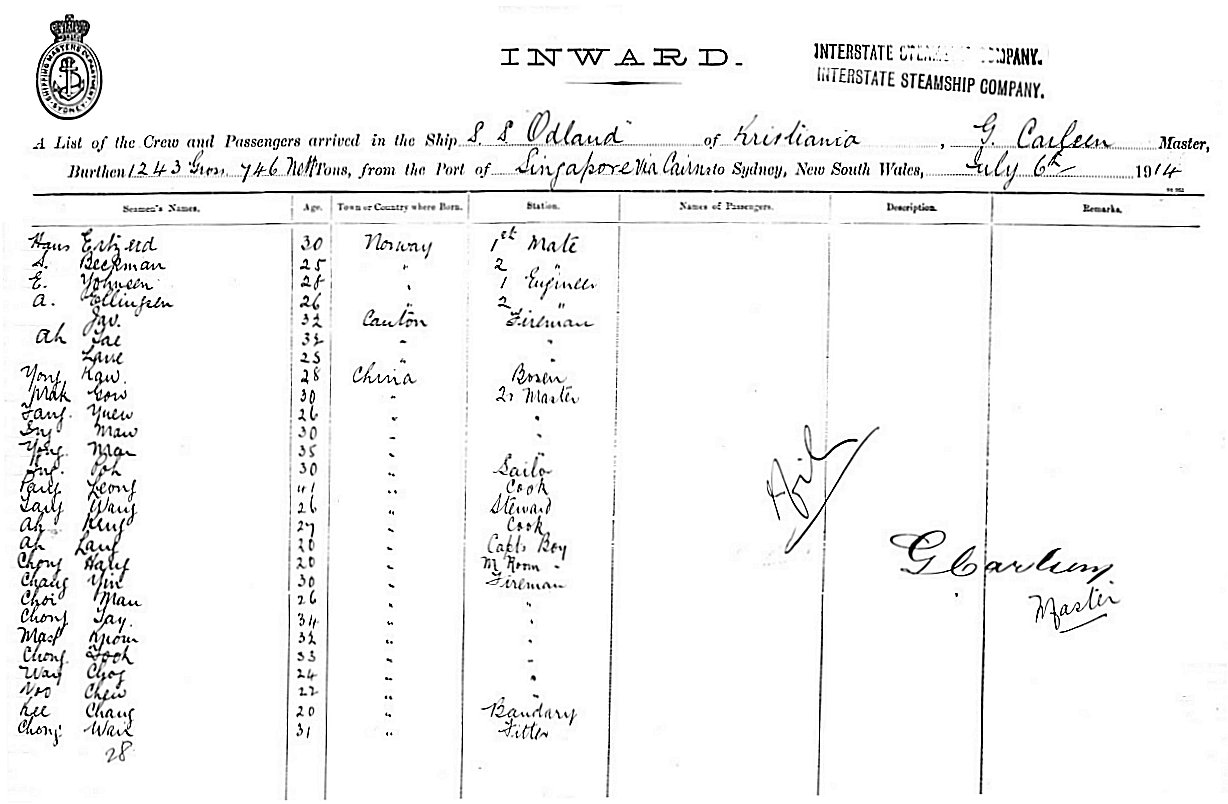 SHIPPING MASTERS DEPARTMENT SYDNEY
INWARD.
INTERSTATE COMPANY.
INTERSTATE STEAMSHIP COMPANY.
A List of the Crew and Passengers arrived in the Ship S. S Odland of Kristiania, G. Carlsen Master,
Burthen 1243 Gross 746 Nett Tons, from the Port of Singapore via Cairns to Sydney, New South Wales, July 6th 1914
Seamen's Names. Age. Town or Country where Born. Station. Names of Passengers. Description. Remarks.
Hans 30 Norway 1st Mate
S. Beckman 25 " 2 "
E. Yohnsen 28 " 1 Engineer
A. Ellingsen 26 " 2 "
Jav. 32 Canton Fireman
Ah Tae 32 " "
Lane 25 " "
Yong Kaw. 28 China Bosen
Mak Gow 30 " Qr Master
Fang. Yuen 26 " "
Ing Maw 30 " "
Yong. Man 35 " "
Ing. Poh 30 " Sailo
Pang Leong 41 " Cook
Tang Wang 26 " Steward
Ah King 27 " Cook
Ah Lang 20 " Capts Boy
Chong Hang 20 " M Room "
Chang Yin 30 " Fireman
Choi Man 26 " "
Chong Tay. 34 " "
32 " "
Chong. Fook 33 " "
Way Choy 24 " "
Woo Chew 22 " "
Kee Chang 20 " Bandary
Chong Wan 31 " Fitter
28
Nil
G Carlsen
Master